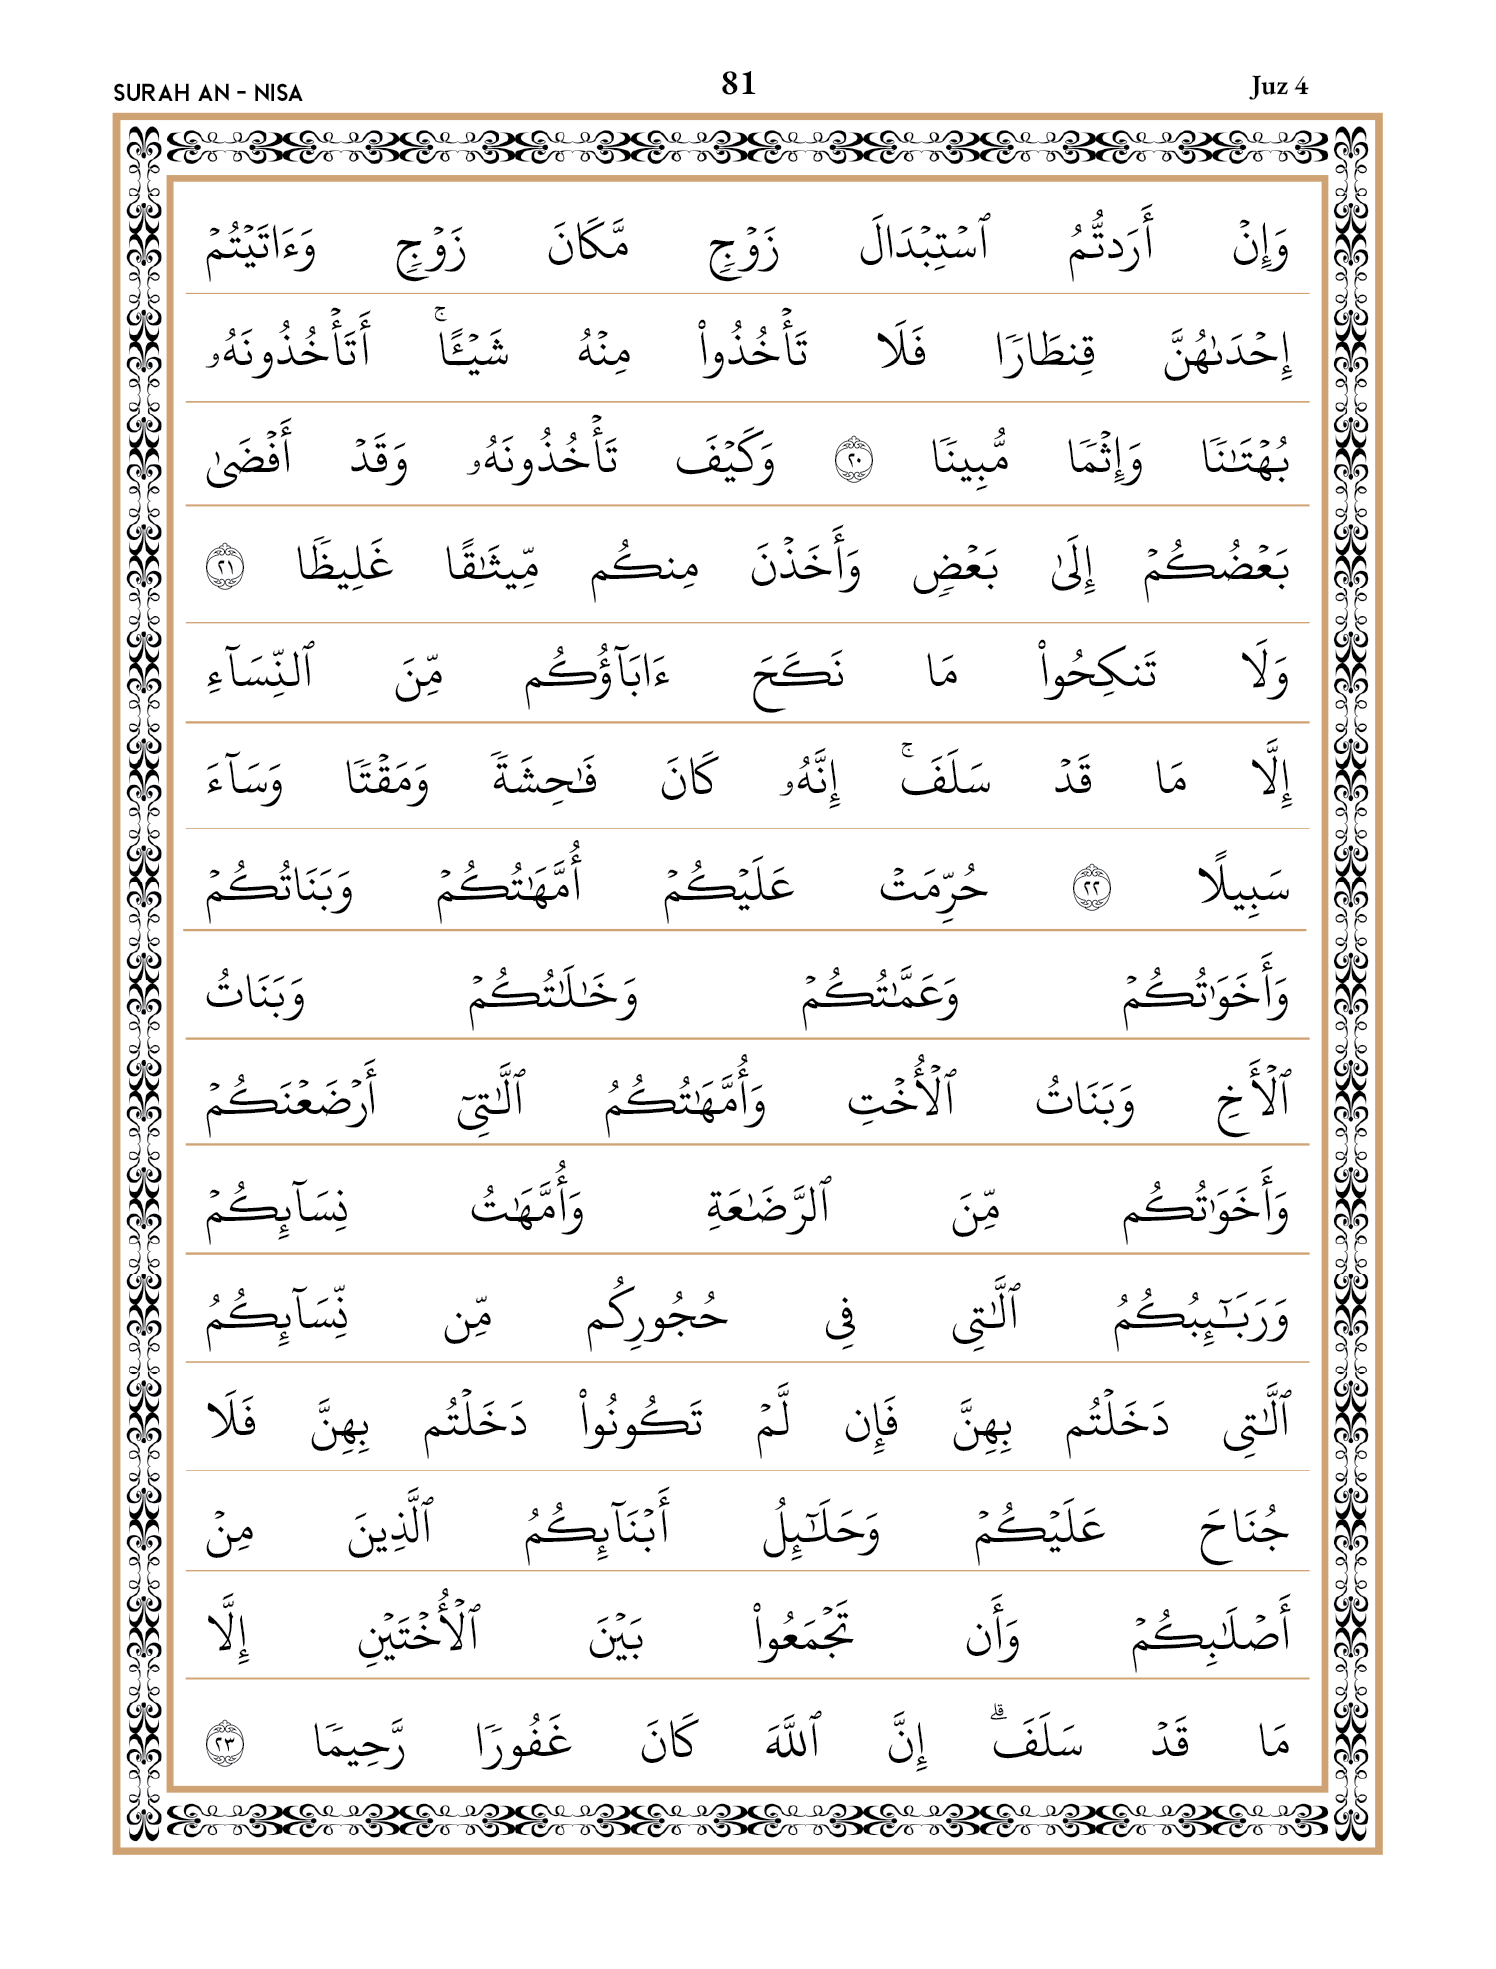 SURAH AN - NISA 81 Juz 4
وَإِنْ أَرَدتُّمُ ٱسْتِبْدَالَ زَوْجٍ مَّكَانَ زَوْجٍ وَءَاتَيْتُمْ
إِحْدَىٰهُنَّ قِنطَارًا فَلَا تَأْخُذُوا۟ مِنْهُ شَيْـًٔا ۚ أَتَأْخُذُونَهُۥ
بُهْتَـٰنًا وَإِثْمًا مُّبِينًا ٢٠ وَكَيْفَ تَأْخُذُونَهُۥ وَقَدْ أَفْضَىٰ
بَعْضُكُمْ إِلَىٰ بَعْضٍ وَأَخَذْنَ مِنكُم مِّيثَـٰقًا غَلِيظًا ٢١
وَلَا تَنكِحُوا۟ مَا نَكَحَ ءَابَآؤُكُم مِّنَ ٱلنِّسَآءِ
إِلَّا مَا قَدْ سَلَفَ ۚ إِنَّهُۥ كَانَ فَـٰحِشَةً وَمَقْتًا وَسَآءَ
سَبِيلًا ٢٢ حُرِّمَتْ عَلَيْكُمْ أُمَّهَـٰتُكُمْ وَبَنَاتُكُمْ
وَأَخَوَٰتُكُمْ وَعَمَّـٰتُكُمْ وَخَـٰلَـٰتُكُمْ وَبَنَاتُ
ٱلْأَخِ وَبَنَاتُ ٱلْأُخْتِ وَأُمَّهَـٰتُكُمُ ٱلَّـٰتِىٓ أَرْضَعْنَكُمْ
وَأَخَوَٰتُكُم مِّنَ ٱلرَّضَـٰعَةِ وَأُمَّهَـٰتُ نِسَآئِكُمْ
وَرَبَـٰٓئِبُكُمُ ٱلَّـٰتِى فِى حُجُورِكُم مِّن نِّسَآئِكُمُ
ٱلَّـٰتِى دَخَلْتُم بِهِنَّ فَإِن لَّمْ تَكُونُوا۟ دَخَلْتُم بِهِنَّ فَلَا
جُنَاحَ عَلَيْكُمْ وَحَلَـٰٓئِلُ أَبْنَآئِكُمُ ٱلَّذِينَ مِنْ
أَصْلَـٰبِكُمْ وَأَن تَجْمَعُوا۟ بَيْنَ ٱلْأُخْتَيْنِ إِلَّا
مَا قَدْ سَلَفَ ۗ إِنَّ ٱللَّهَ كَانَ غَفُورًا رَّحِيمًا ٢٣